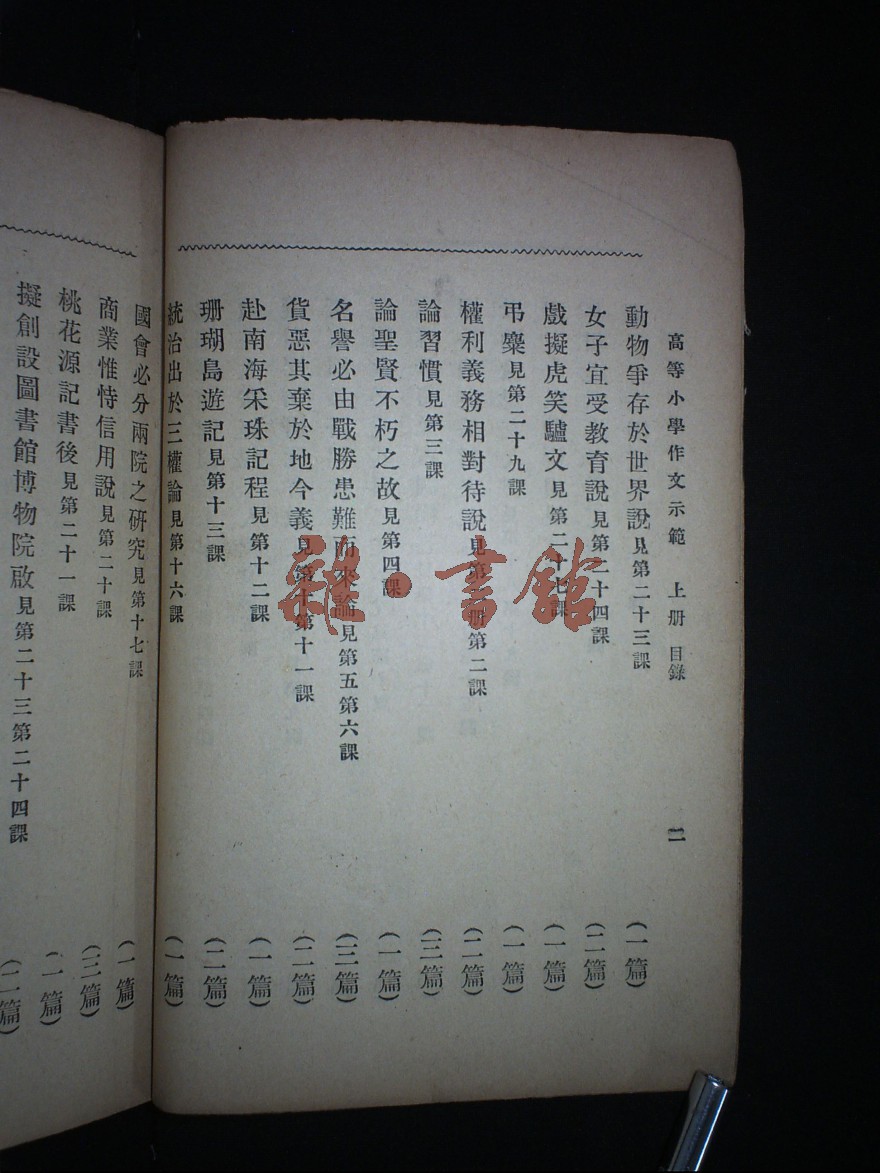 高等小學作文示範 上册 目錄 二
動物爭存於世界說見第二十三課 (一篇)
女子宜受教育說見第二十四課 (二篇)
戲擬虎笑驢文見第二十七課 (一篇)
弔麋見第二十九課 (一篇)
權利義務相對待說見第 册第二課 (二篇)
論習慣見第三課 (三篇)
論聖賢不朽之故見第四課 (一篇)
名譽必由戰勝患難而來論見第五第六課 (三篇)
貨惡其棄於地今義見第十第十一課 (二篇)
赴南海采珠記程見第十二課 (一篇)
珊瑚島遊記見第十三課 (二篇)
統治出於三權論見第十六課 (一篇)
國會必分兩院之研究見第十七課 (一篇)
商業惟恃信用說見第二十課 (三篇)
桃花源記書後見第二十一課 (一篇)
擬創設圖書館博物院啟見第二十三第二十四課 (二篇)
雜·書館